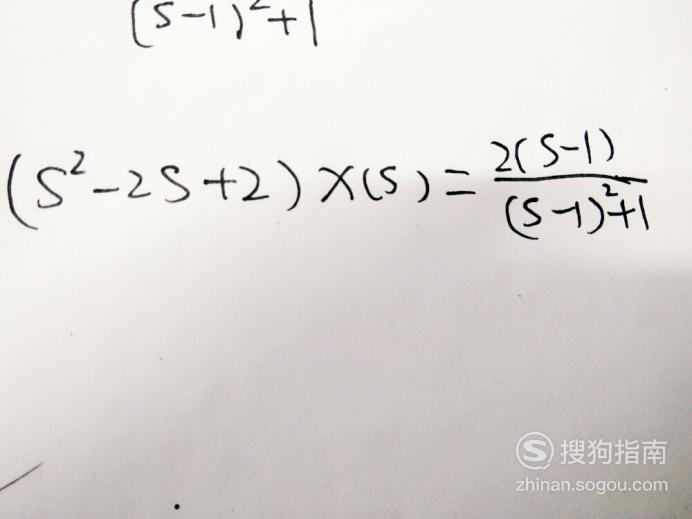 (S-1)²+1
(S²-2S+2)X(S)=2(S-1)/(S-1)²+1
搜狗指南
zhinan.sogou.com